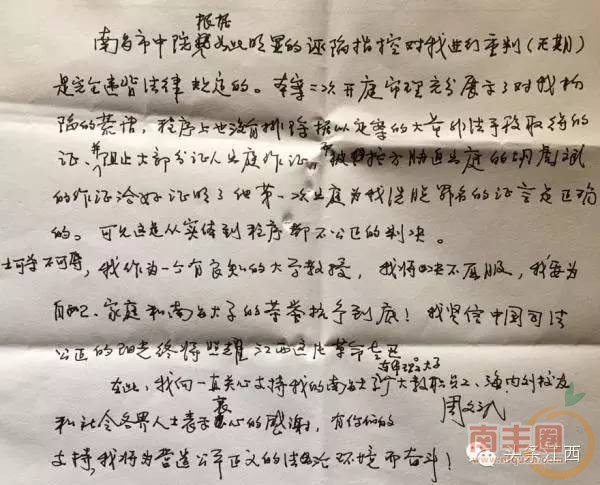 根据
南昌市中院如此明显的诬陷指控对我进行重判(无期)
是完全违背法律规定的。本案二次开庭审理充分展示了对我构
陷的荒诞,程序上也没有排除据以定案的大量非法手段取得的
证、并阻止大部分证人出庭作证,被控方胁迫出庭的胡彪斌
的作证恰好证明了他第一次出庭为我洗脱罪名的证言是正确
的。可见这是从实体到程序都不公正的判决。
士可杀不可辱,我作为一个有良知的大学教授,我将决不屈服,我要为
自己、家庭和南昌大学的荣誉抗争到底!我坚信中国司法
公正的阳光终将照耀江西这片革命老区
在此,我向一直关心支持我的南昌大学广大教职员工、海内外校友
和社会各界人士表示衷心的感谢,有你们的
周文斌
支持,我将为营造公平正义的法治环境而奋斗!
南丰圈
头条江西